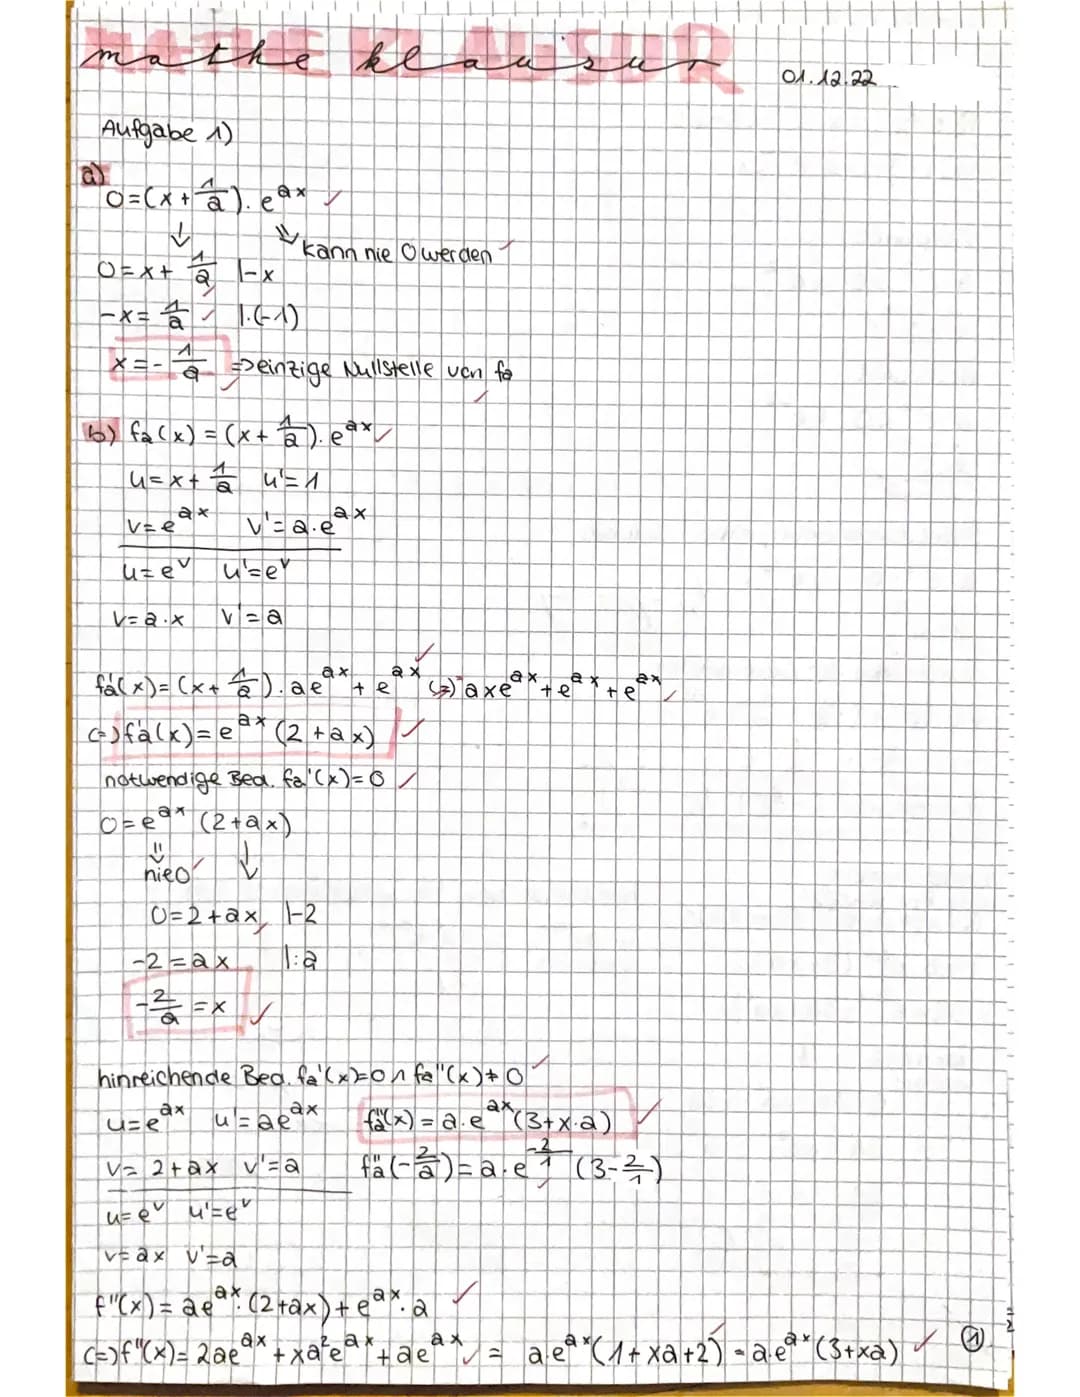 mathe klausur
01.12.22
Aufgabe 1)
a)
0=(x+1/a)·e^ax ✓
↓ ⇓ kann nie 0 werden
0=x+1/a |-x
-x=1/a |·(-1)
x=-1/a => einzige Nullstelle von fa
b) fa(x)=(x+1/a)·e^ax ✓
u=x+1/a u'=1
v=e^ax v'=a·e^ax
u=e^v u'=e^v
v=a·x v'=a
fa'(x)=(x+1/a)·ae^ax+e^ax (=) axe^ax+e^ax+e^ax
(=) fa'(x)=e^ax(2+ax) ✓
notwendige Bed. fa'(x)=0 ✓
0=e^ax(2+ax)
⇓ ↓
nie 0
0=2+ax |-2
-2=ax |:a
-2/a=x ✓
hinreichende Bed. fa'(x)=0 ∧ fa''(x)≠0
u=e^ax u'=ae^ax fa''(x)=a·e^ax(3+x·a) ✓
v=2+ax v'=a fa''(-2/a)=a·e^(-2/1)(3-2/1)
u=e^v u'=e^v
v=ax v'=a
f''(x)=ae^ax·(2+ax)+e^ax·a ✓
(=) f''(x)=2ae^ax+xa²e^ax+ae^ax = a·e^ax(1+xa+2)=a·e^ax(3+xa) ✓ ①